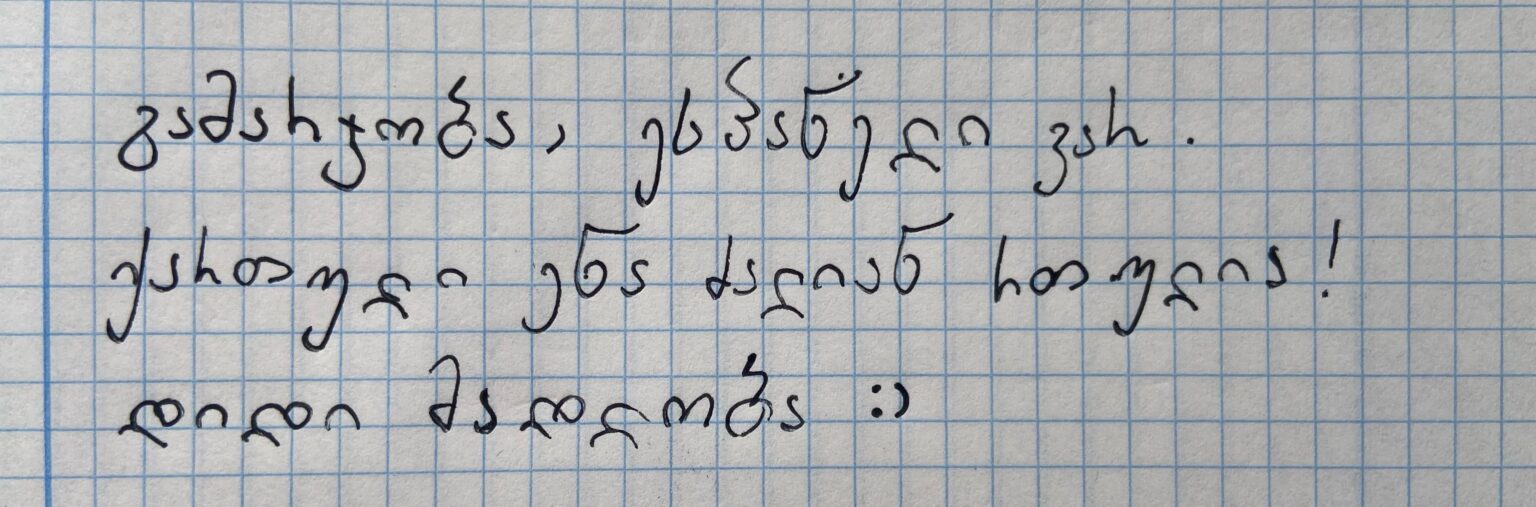 გამარჯობა, ესპანელი ვარ.
ქართული ენა ძალიან რთულია!
დიდი მადლობა :)